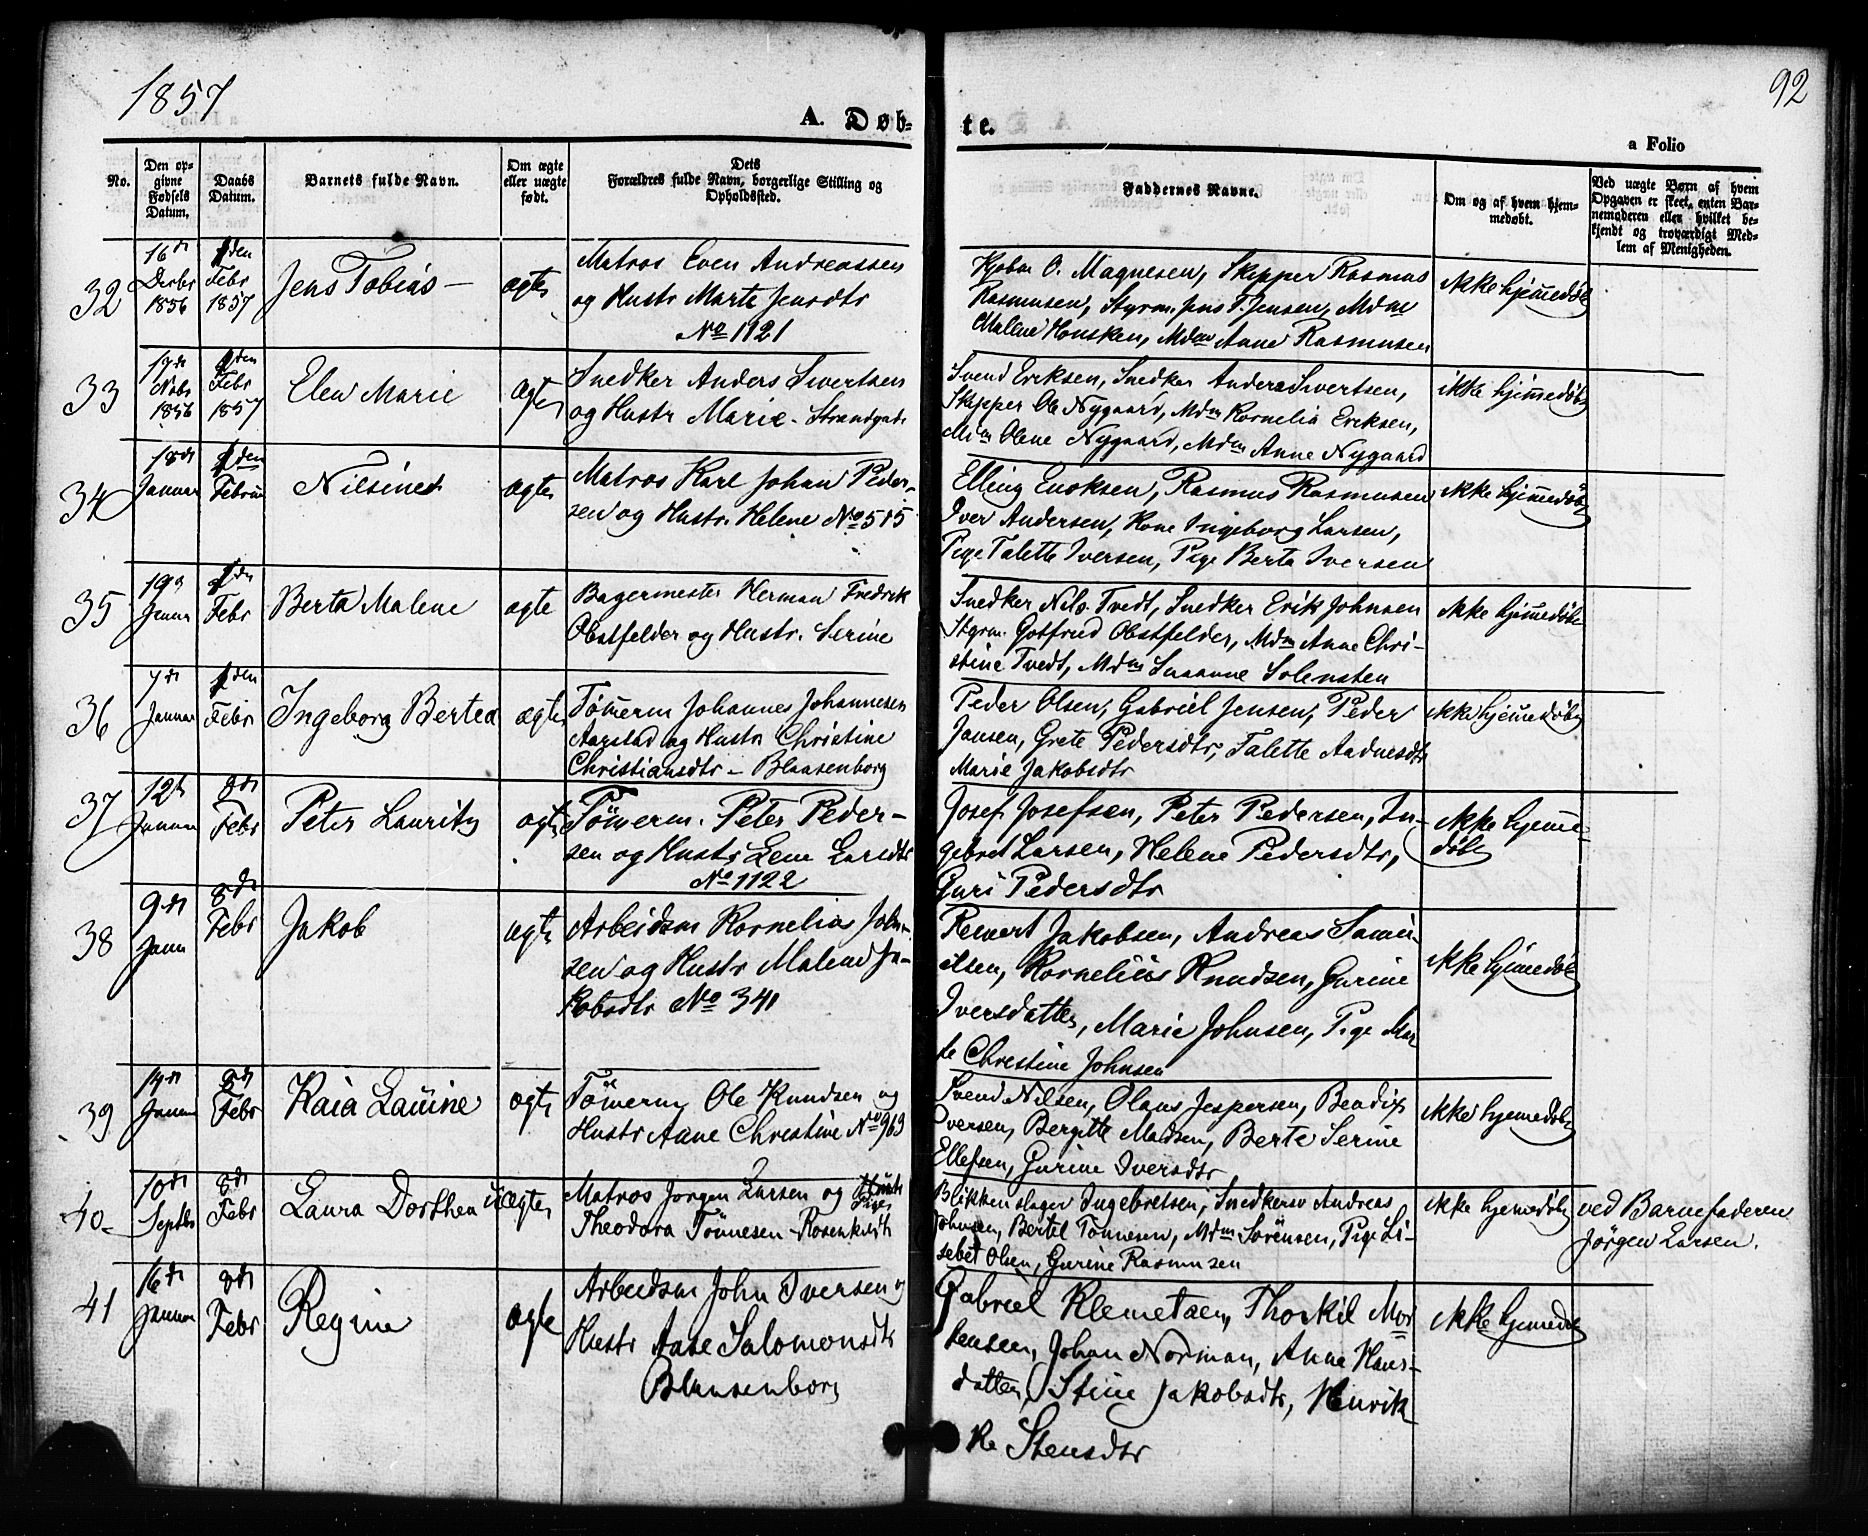 1857
92
A. Døb-
te.
a Folio
No.
Den op-
givne
Fødsels
Datum.
Daabs
Datum.
Barnets fulde Navn.
Om ægte
eller uægte
født.
Dets
Forældres fulde Navn, borgerlige Stilling og
Opholdssted.
Faddernes Navne.
Om og af hvem hjem-
medøbt.
Ved uægte Børn af hvem
Opgaven er skeet, enten Bar-
nemoderen eller hvilket be-
kjendt og troværdigt Med-
lem af Menigheden.
32
16de
Decbr
1856
1den
Febr
1857
Jens Tobias
ægte
Matros Even Andreassen
og Hustr Marte Jensdtr
No 1121
Kjøbm O. Magnesen, Skipper Rasmus
Rasmusen, Styrm. Jens T. Jensen, Mdm
Malene Housken, Mdm Anne Rasmusen
ikke hjemmedøbt
33
17de
Nobr
1856
1den
Febr
1857
Elen Marie
ægte
Snedker Anders Sivertsen
og Hustr Marie - Strandgade
Svend Eriksen, Snedker Anders Sivertsen,
Skipper Ole Nygaard, Mdm Kornelia Eriksen,
Mdm Olene Nygaard, Mdm Anne Nygaard
ikke hjemmedøbt
34
18de
Januar
1den
Februar
Nilsine
ægte
Matros Karl Johan Peder-
sen og Hustr. Helene No 515
Elling Enoksen, Rasmus Rasmusen
Iver Andersen, Kone Ingeborg Larsen,
Pige Talette Iversen, Pige Berta Iversen
ikke hjemmedøbt
35
19de
Januar
1den
Febr
Berta Malene
ægte
Bagermester Herman Fredrik
Obstfelder og Hustr. Serine
Snedker Nils Tvedt, Snedker Erik Johnsen
Styrm. Gotfried Obstfelder, Mdm Anne Chri-
stine Tvedt, Mdm Susanne Solensten
ikke hjemmedøbt
36
7de
Januar
1den
Febr
Ingeborg Bertea
ægte
Tømerm Johannes Johannesen
Aarstad og Hustr Christine
Christiansdtr - Blaasenborg
Peder Olsen, Gabriel Jensen, Peder
Jansen, Grete Pedersdtr, Talette Aadnesdtr
Marie Jakobsdtr
ikke hjemmedøbt
37
12te
Januar
8de
Febr
Peter Lauritz
ægte
Tømerm. Peter Peder-
sen og Hustr Lene Larsdtr
No 1122
Josef Josefsen, Peter Pedersen, In-
gebret Larsen, Helene Pedersdtr,
Guri Pedersdtr
ikke hjemme-
døbt
38
9de
Janu
8de
Febr
Jakob
ægte
Arbeidsm Kornelius John-
sen og Hustr Malene Ja-
kobsdtr No 341
Reinert Jakobsen, Andreas Samu-
elsen, Kornelius Knudsen, Gurine
Iversdatter, Marie Johnsen, Pige Mar
te Christine Johnsen
ikke hjemmedøbt
39
14de
Januar
8de
Febr
Kaia Lauine
ægte
Tømerm Ole Knudsen og
Hustr Anne Christine No 963
Svend Nilsen, Olaus Jespersen, Bendix
Iversen, Bergitte Madsen, Berte Serine
Ellefsen, Gurine Iversdtr
ikke hjemmedøbt
40
10de
Septbr
8de
Febr
Laura Dorthea
uægte
Matros Jørgen Larsen og Pige
Theodora Tønnesen - Rosenkildt
Blikkenslager Ingebretsen, Snedkersv Andreas
Johnsen, Bertel Tønnesen, Mdm Sørensen, Pige Li-
sebet Olsen, Gurine Rasmusen
ikke hjemmedøbt
ved Barnefaderen
Jørgen Larsen.
41
16de
Januar
8de
Febr
Regine
ægte
Arbeidsm John Iversen og
Hustr Aase Salomonsdtr
Blaasenborg
Gabriel Klemetsen, Thorkil Mor
tensen, Johan Norman, Anne Hans-
datter, Stine Jakobsdtr, Henrik
ke Stensdtr
ikke hjemmedøbt